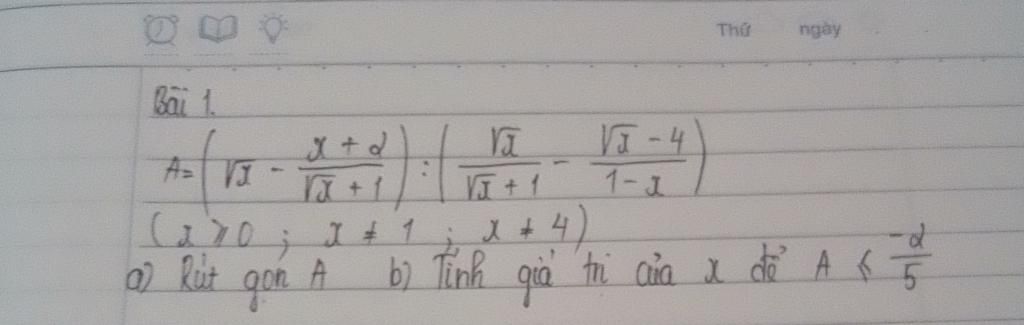 Thứ ngày
Bài 1.
A = ( √x - (x + 2)/(√x + 1) ) : ( √x/(√x + 1) - (√x - 4)/(1 - x) )
( x ≥ 0 ; x ≠ 1 ; x ≠ 4 )
a) Rút gọn A b) Tính giá trị của x để A ≤ -2/5